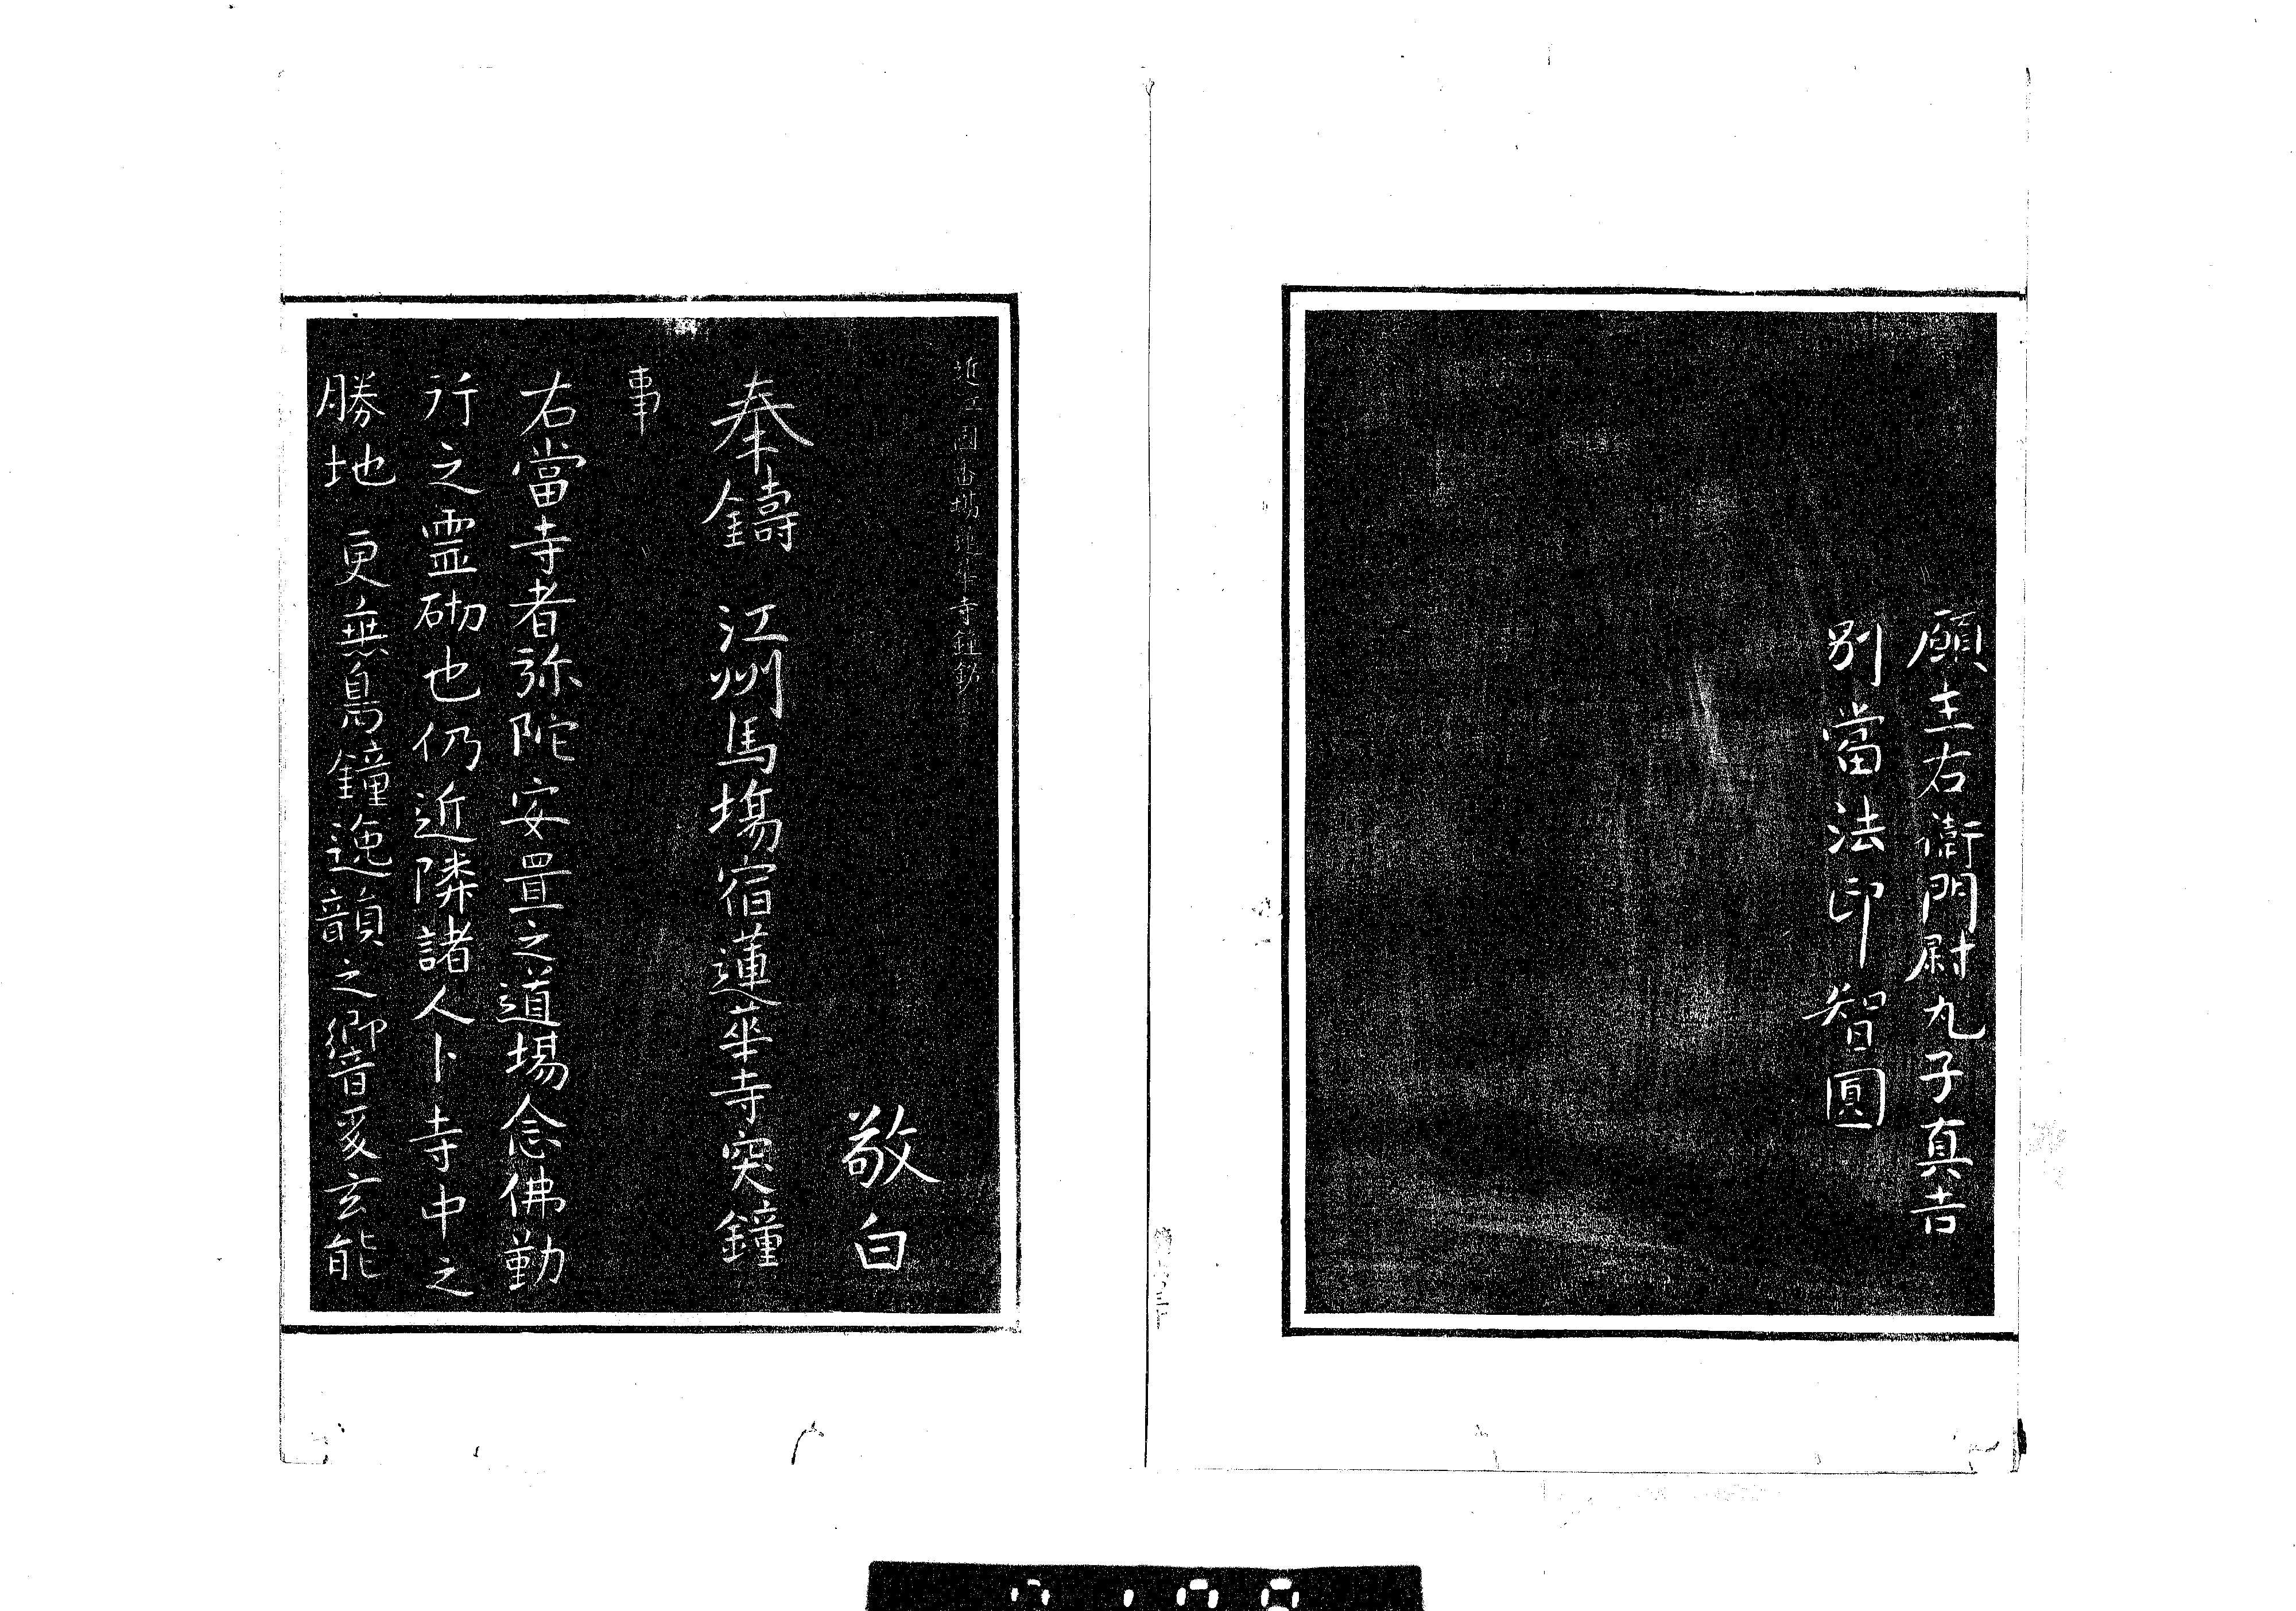 願主右衛門尉丸子真吉
別當法印智圓
近江國番場蓮華寺鐘銘
敬白
奉鑄 江州馬塲宿蓮華寺突鐘
事
右當寺者弥陀安置之道場念佛勤
行之霊砌也仍近隣諸人卜寺中之
勝地更無鳬鐘逸韻之響爰玄能